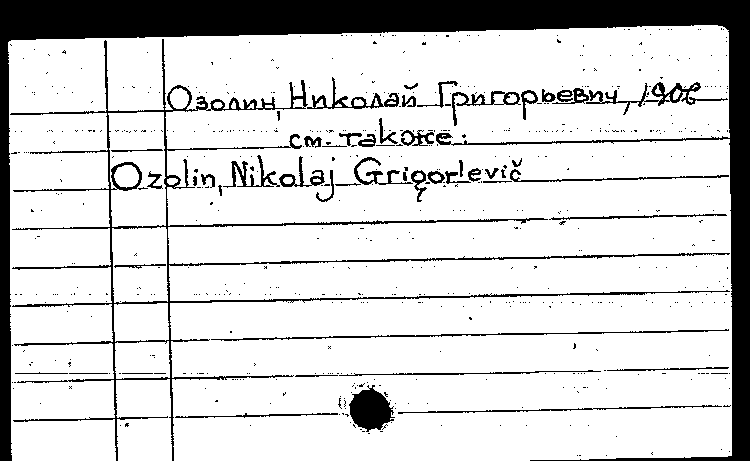 Озолин, Николай Григорьевич, 1906
см. также:
Ozolin, Nikolaj Grigor'evič